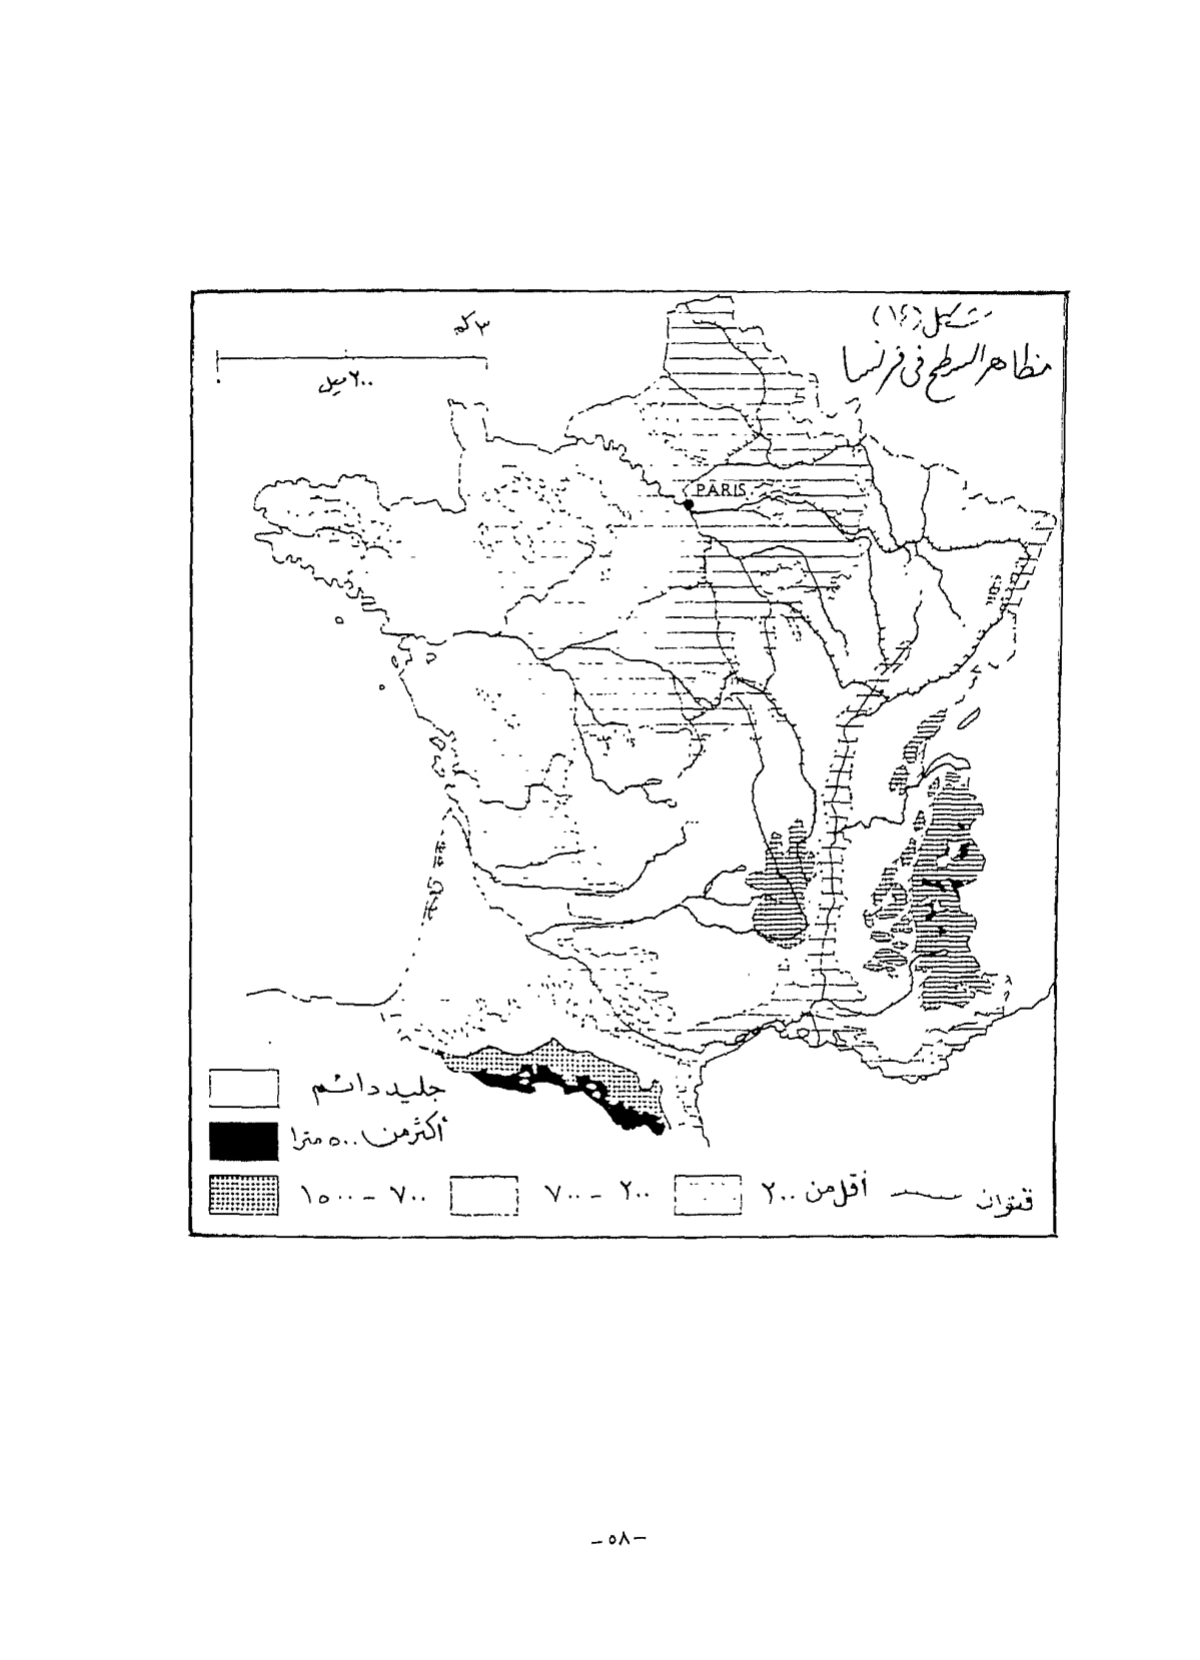 شكل (١٤)
مظاهر السطح فى فرنسا
٣ كم
٢٠٠ ميل
PARIS
جليد دائم
أكثر من ٥٠٠ مترا
٧٠٠ - ١٥٠٠
٢٠٠ - ٧٠٠
أقل من ٢٠٠
قنوات
- ٥٨ -